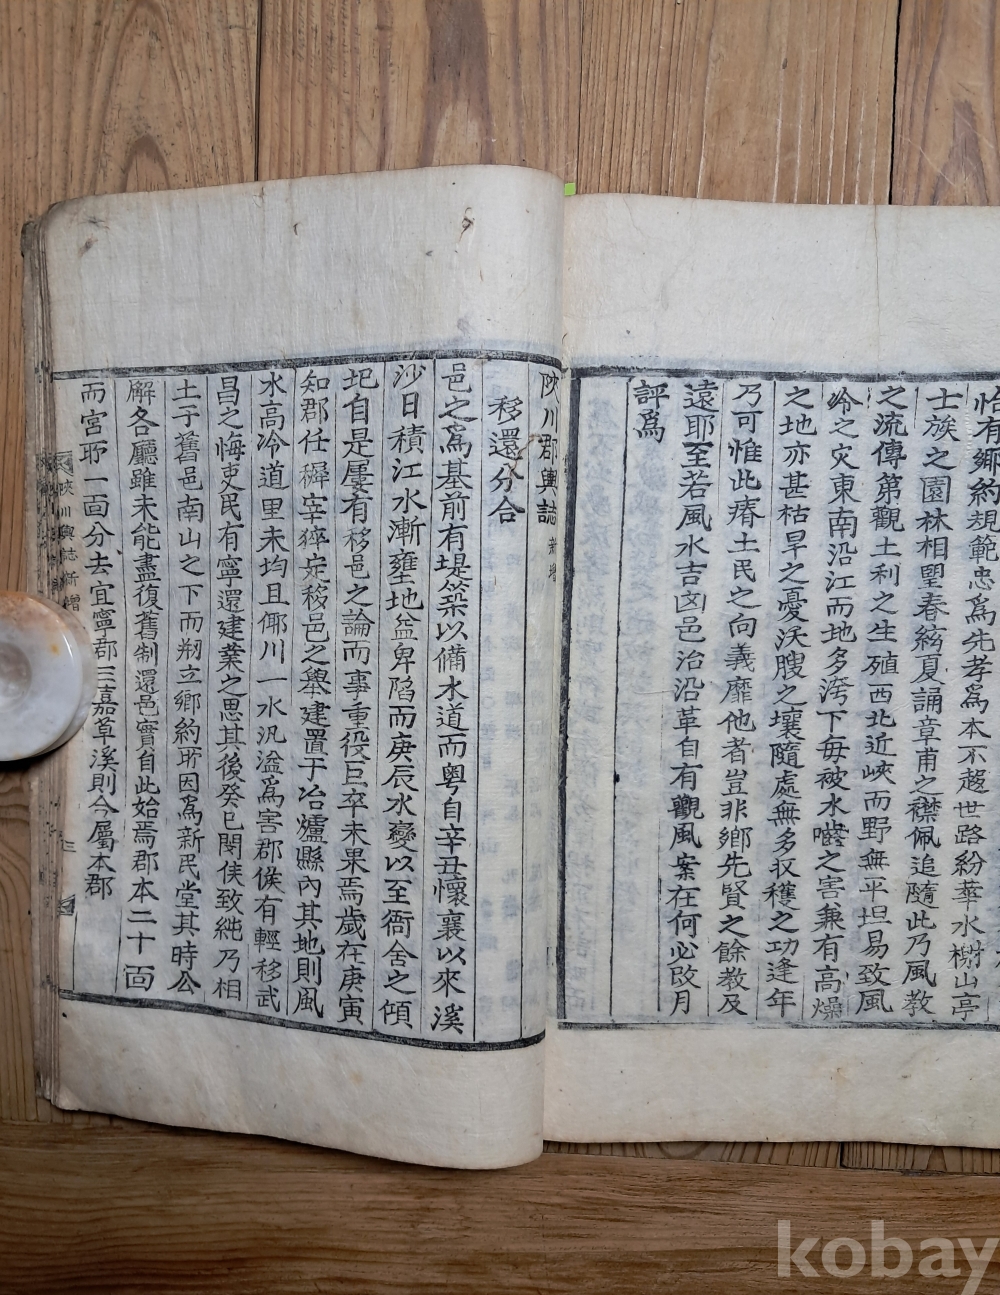 怡有鄉約規範忠爲先孝爲本不趍世路紛華水榭山亭
士族之園林相望春絃夏誦章甫之襟佩追隨此乃風敎
之流傳第觀土利之生殖西北近峽而野無平坦易致風
冷之灾東南沿江而地多洿下每被水嚙之害兼有高燥
之地亦甚枯旱之憂沃腴之壤隨處無多收穫之功逢年
乃可惟此瘠土民之向義靡他者豈非鄉先賢之餘敎及
遠耶至若風水吉凶邑治沿革自有觀風案在何必改月
評爲
陜川郡輿誌 新增
移還分合
邑之爲基前有堤築以備水道而粤自辛丑懷襄以來溪
沙日積江水漸壅地益卑陷而庚辰水變以至衙舍之傾
圮自是屢有移邑之論而事重役巨卒未果焉歲在庚寅
知郡任穉宰猝定移邑之擧建置于冶爐縣內其地則風
水高冷道里未均且倻川一水汎溢爲害郡候有輕移武
昌之悔吏民有寧還建業之思其後癸巳閔侯致純乃相
土于舊邑南山之下而刱立鄉約所因爲新民堂其時公
解各廳雖未能盡復舊制還邑實自此始焉郡本二十面
而宮所一面分去宜寧郡三嘉草溪則今屬本郡
陜川輿誌新增
三
kobay